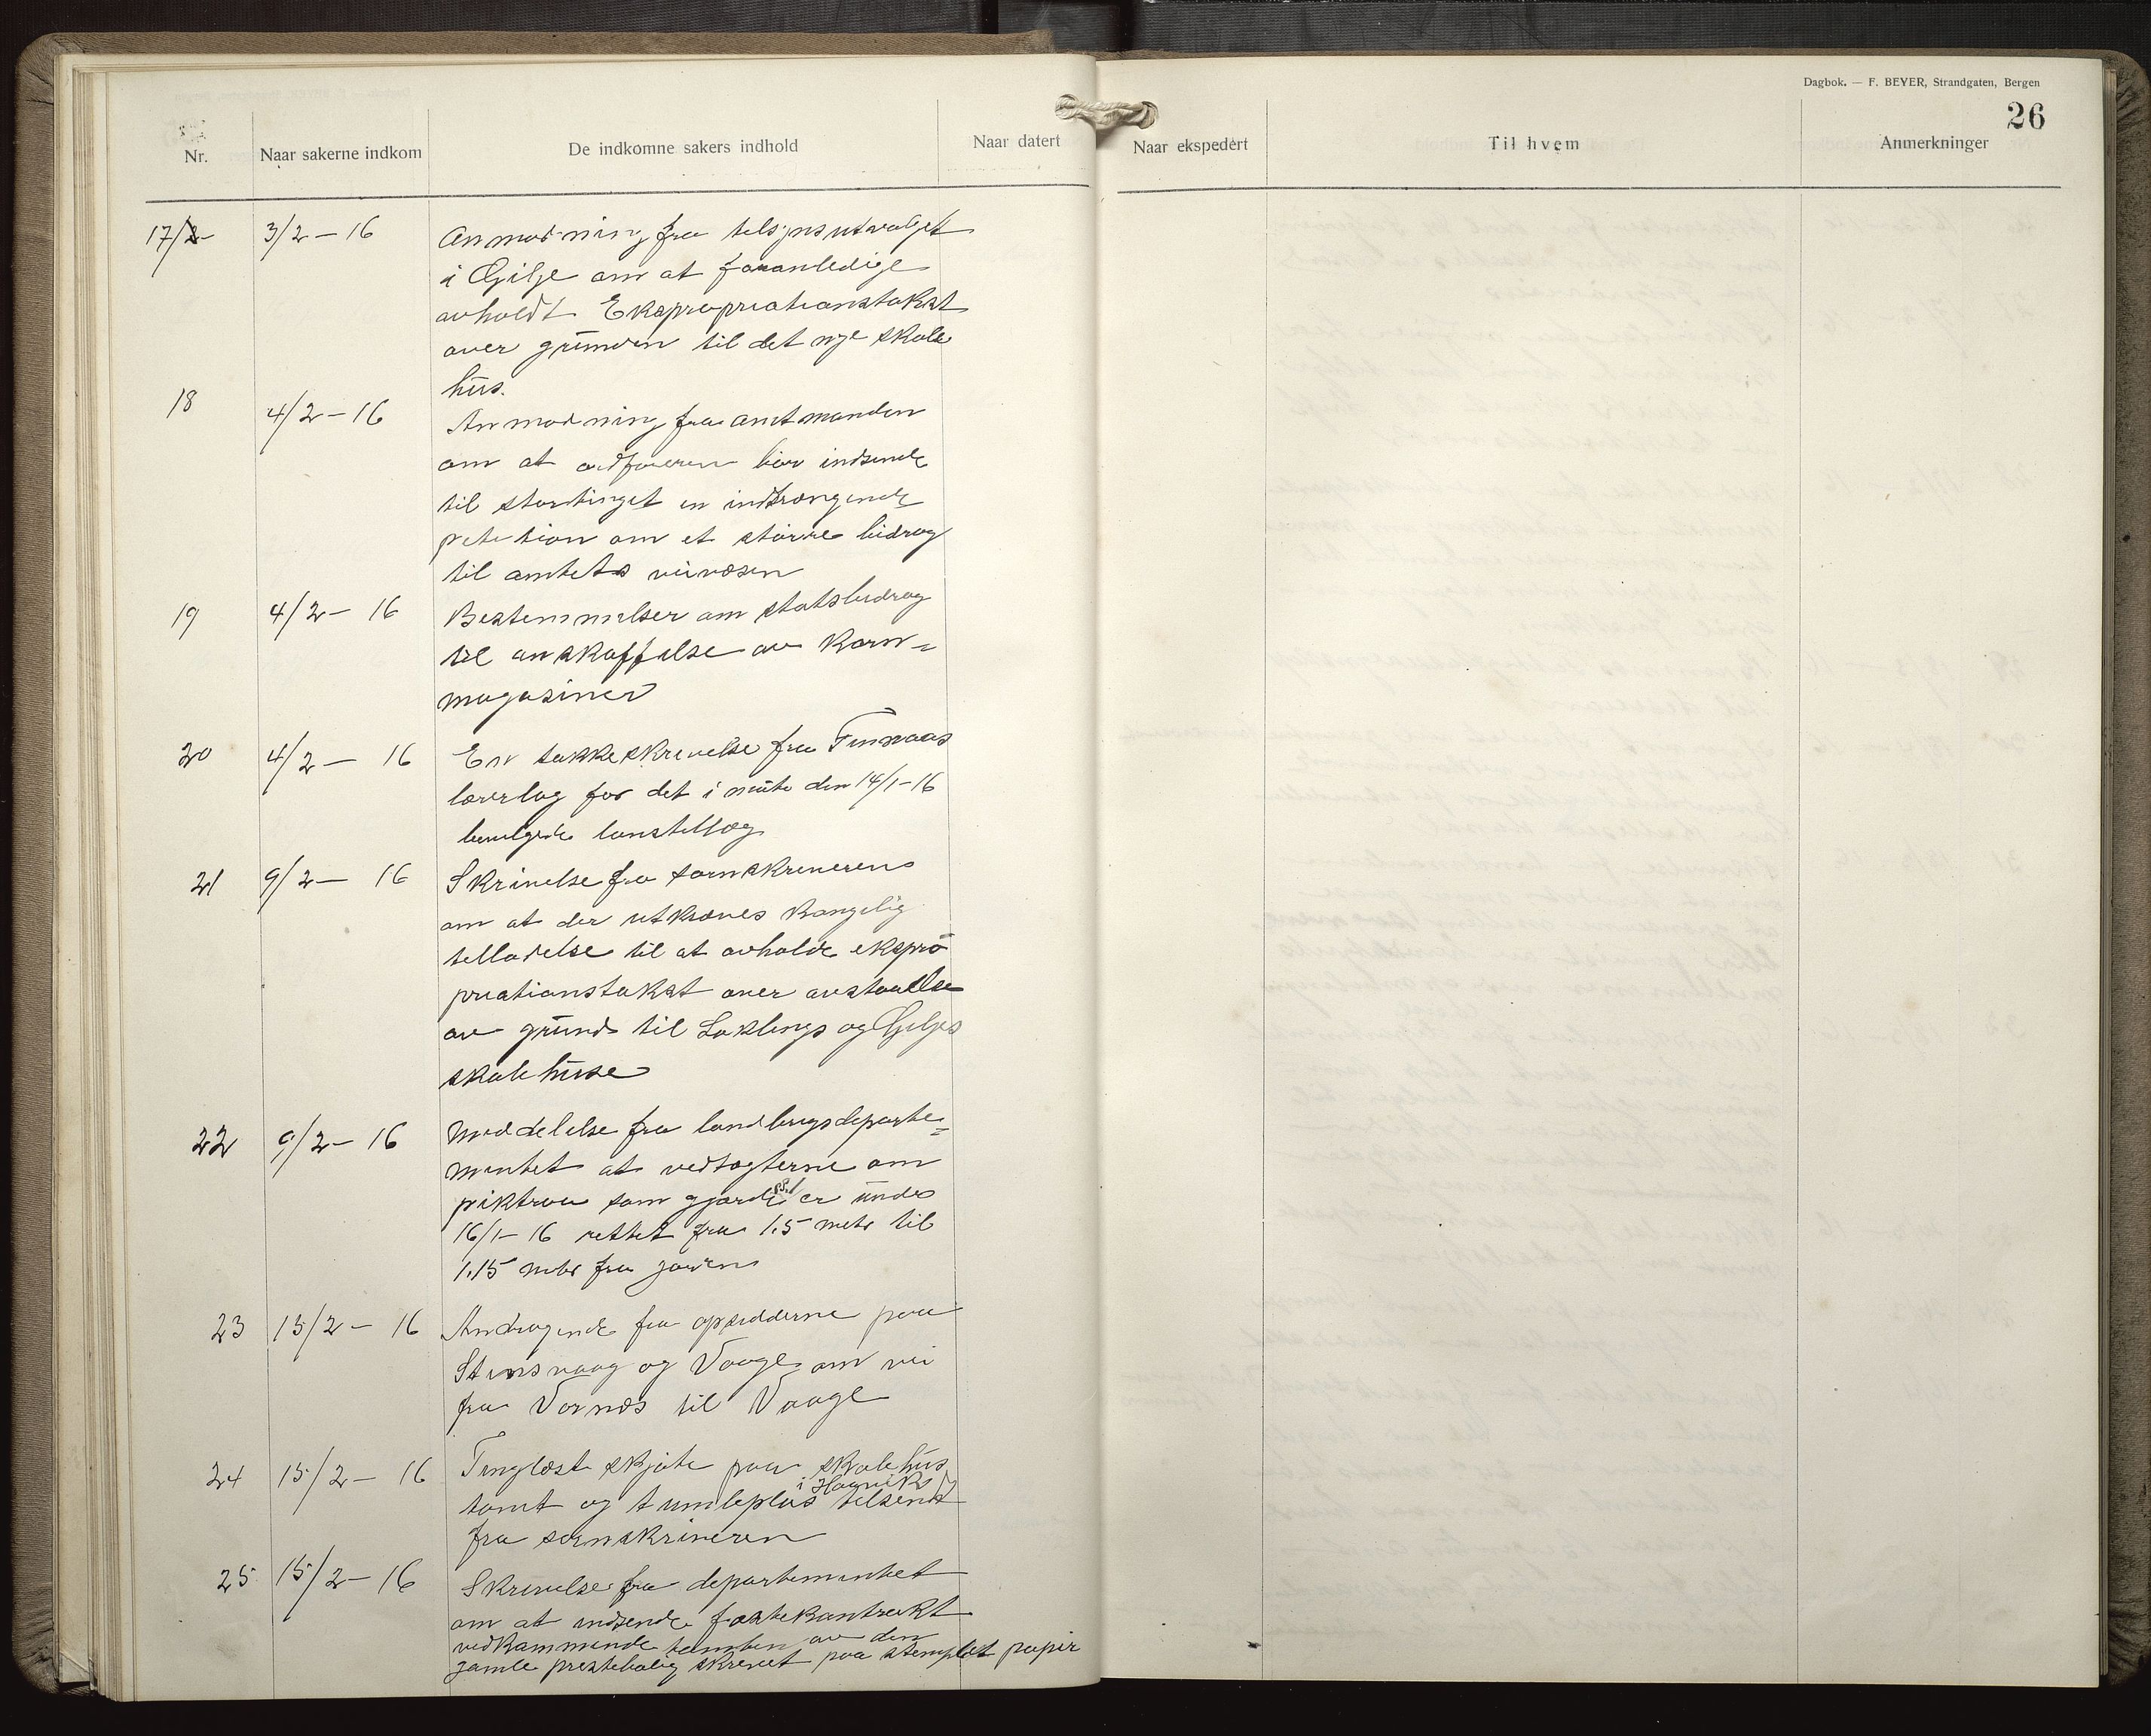 Dagbok. — F. BEYER, Strandgaten, Bergen
26
Nr. Naar sakerne indkom De indkomne sakers indhold Naar datert Naar ekspedert Til hvem Anmerkninger
17/2 3/2 – 16 Anmodning fra tilsynsutvalget
i Gilje om at foranledige
avholdt Ekspropriationstakst
over grunden til det nye skole
hus.
18 4/2 – 16 Anmodning fra amtmanden
om at ordföreren bör indsende
til stortinget en indtrængende
petition om et större bidrag
til amtets veivæsen
19 4/2 – 16 Bestemmelser om statsbidrag
til anskaffelse av Korn=
magasiner
20 4/2 – 16 En takkeskrivelse fra Finnaas
lærerlag for det i möte den 14/1–16
bevilgede lönstillæg
21 9/2 – 16 Skrivelse fra sorenskriveren
om at der utkræves Kongelig
tilladelse til at avholde ekspro
priationstakst over avstaaelse
av grund til Loklings og Giljes
skolehuse
22 9/2 – 16 Meddelelse fra landbrugsdeparte=
mentet at vedtægterne om
piktraa som gjærde er under
16/1–16 rettet fra 1.5 meter til
1.15 meter fra jorden
23 15/2 – 16 Andragende fra opsidderne paa
Stensvaag og Vaage om vei
fra Vornæs til Vaage
24 15/2 – 16 Tinglæst skjöte paa skolehus
i Haavik
tomt og tumleplas tilsendt
fra sorenskriveren
25 15/2 – 16 Skrivelse fra departementet
om at indsende festekontrakt
vedkommende tomten av den
gamle prestebolig skrevet paa stemplet papir